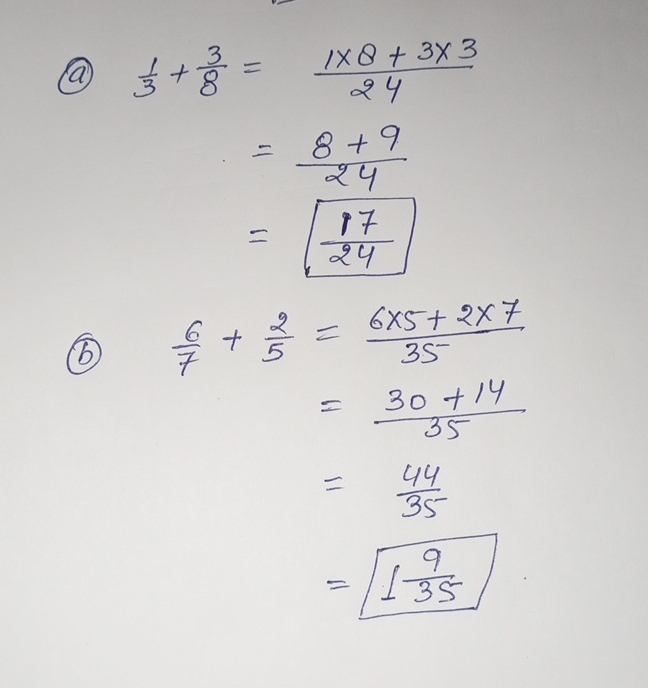 (a) 1/3 + 3/8 = (1×8 + 3×3)/24
= (8 + 9)/24
= 17/24
(b) 6/7 + 2/5 = (6×5 + 2×7)/35
= (30 + 14)/35
= 44/35
= 1 9/35